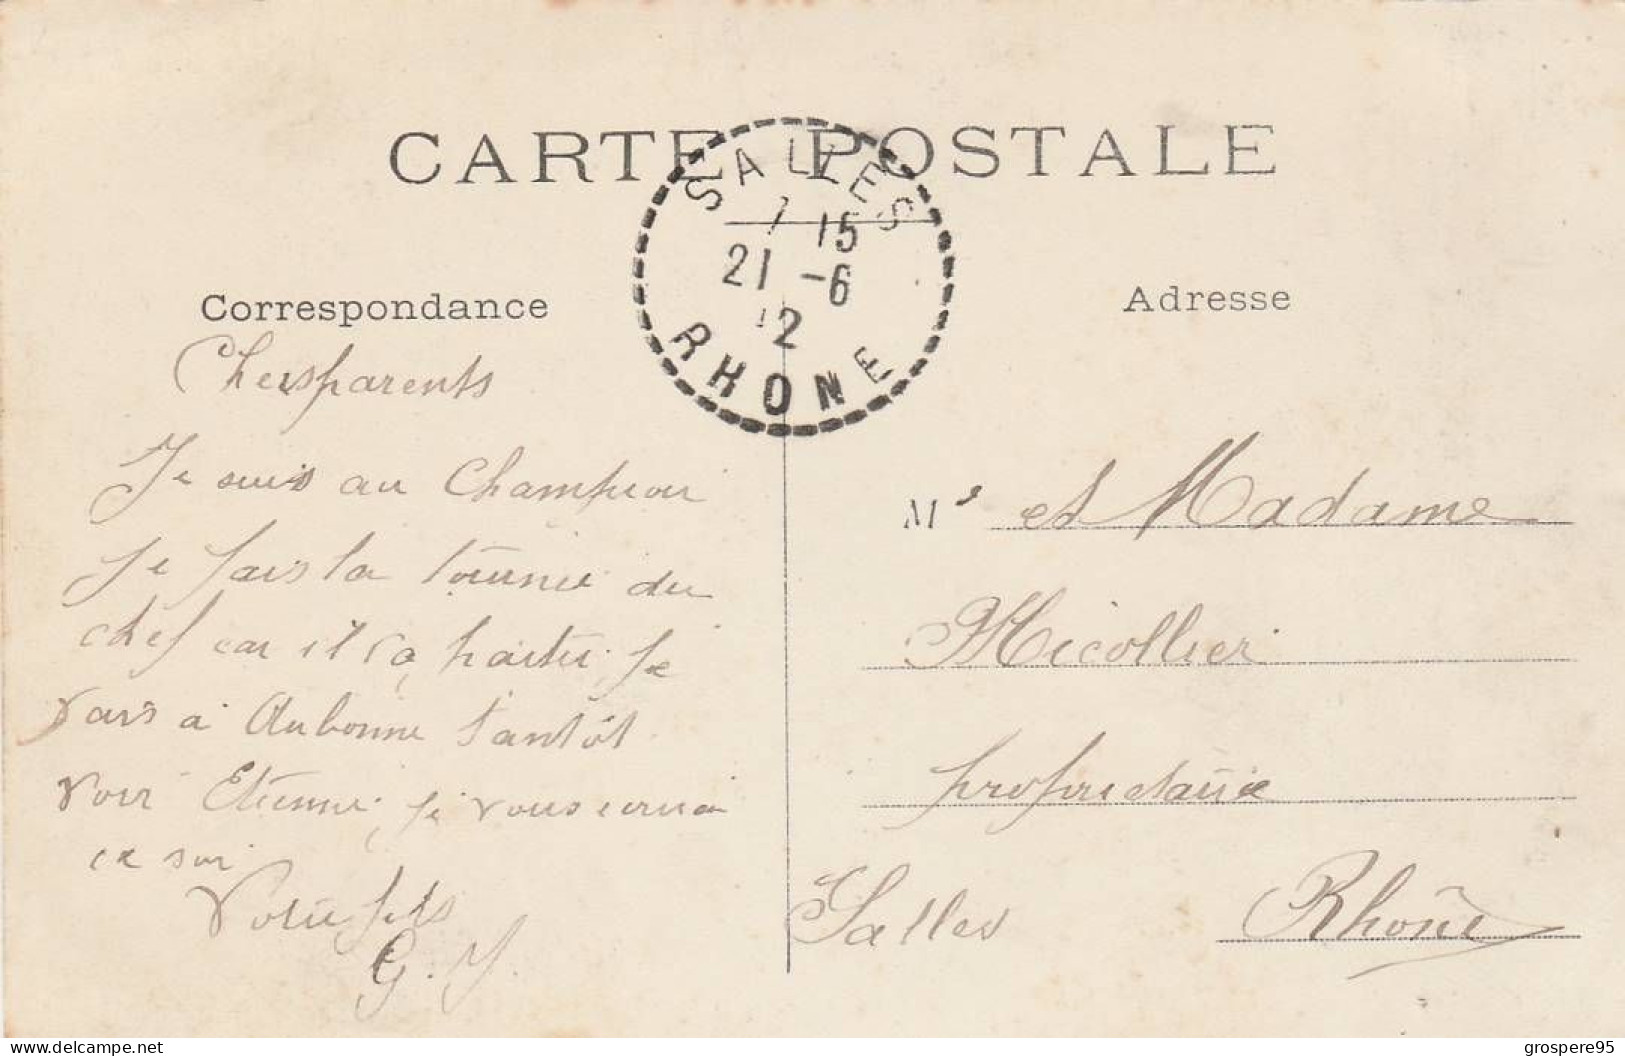 CARTE POSTALE
SALLES
7 15
21 -6
12
RHONE
Correspondance
Adresse
Chers parents
Je suis au
Je fais la tournée du
chef car il Je
vais à Aubonne tantôt
voir Etienne, je vous
ce soir
Votre fils
G.
Mr et Madame
Micollier
propriétaire
Salles Rhône
grospere95